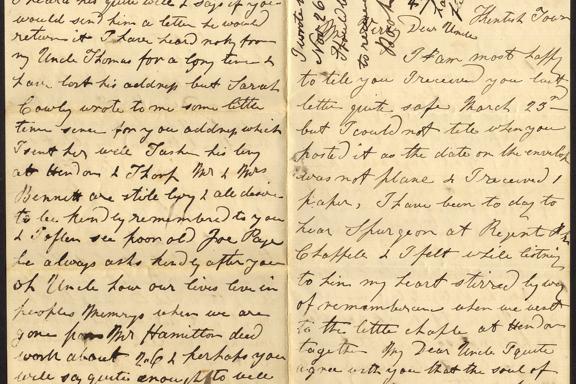 heard his quite well & says if you
would send him a letter he would
return it I have heard not from
my Uncle Thomas for a long time &
have lost his address but Sarah
Cowly wrote to me some little
time since for your address which
I sent her well Tasker his livy
at Hendon & Thorp Mr & Mrs
Bennett are stile livy & all desire
to be kindly remembered to you
& I often see poor old Joe Page
he always asks kindly after you
oh Uncle how our lives live in
peoples Memrys when we are
gone poor Mr Hamilton died
worth about & perhaps you
will say quite enough to well
I wrote
Nov 26
Kentish Town
Dear Uncle
I am most happy
to tell you I received you last
letter quit safe March 25th
but I could not tele when you
posted it as the date on the envelop
was not plane & I received 1
paper, I have been to day to
hear Spurgeon at Regent
Chapple & I felt while listning
to him my heart stirred by way
of rememberance when we went
to the little chaple at Hendon
together My Dear Uncle I quite
agree with you that the soul of